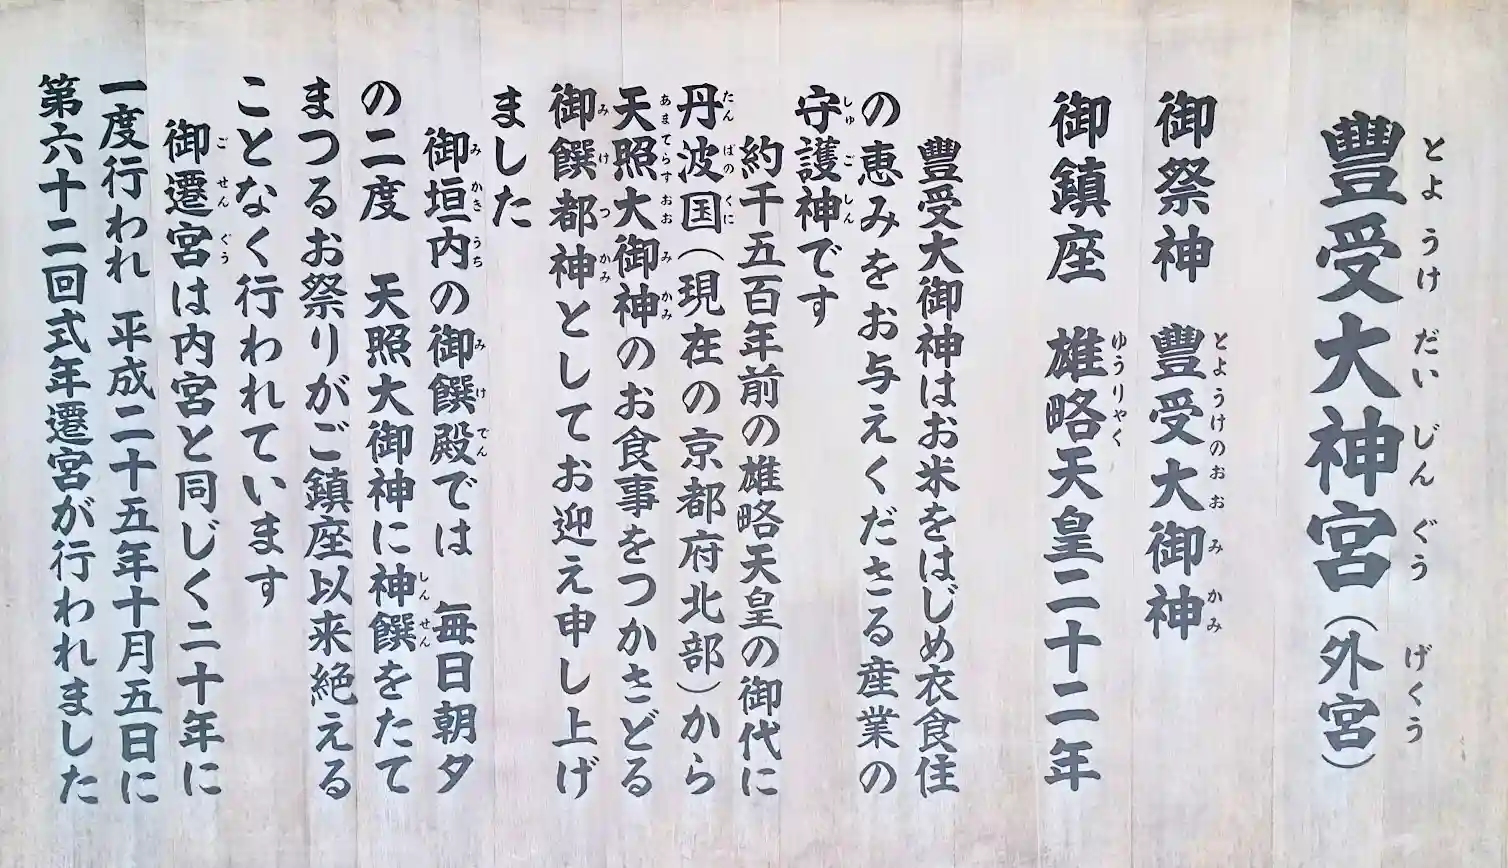 豐受大神宮（外宮）
とようけだいじんぐう　げくう
御祭神　豐受大御神
とようけのおおみかみ
御鎮座　雄略天皇二十二年
ゆうりやく
豐受大御神はお米をはじめ衣食住
の恵みをお与えくださる産業の
守護神です
しゅごしん
約千五百年前の雄略天皇の御代に
丹波国（現在の京都府北部）から
たんばのくに
天照大御神のお食事をつかさどる
あまてらすおおみかみ
御饌都神としてお迎え申し上げ
みけつかみ
ました
御垣内の御饌殿では　毎日朝夕
みかきうち　みけでん
の二度　天照大御神に神饌をたて
しんせん
まつるお祭りがご鎮座以来絶える
ことなく行われています
御遷宮は内宮と同じく二十年に
ごせんぐう
一度行われ　平成二十五年十月五日に
第六十二回式年遷宮が行われました